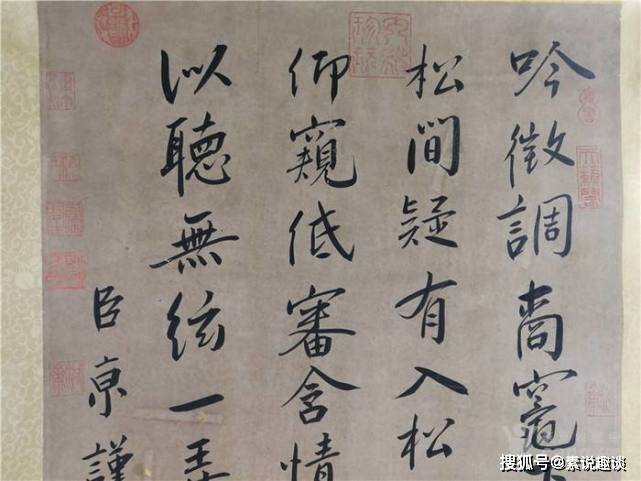 吟徵調商竈下
松間疑有入松
仰窺低審含情
似聽無絃一弄
臣京謹
搜狐号@素说趣谈